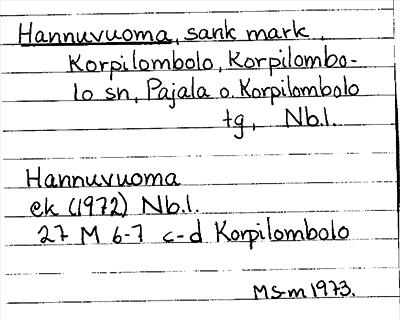 Hannuvuoma, sank mark,
Korpilombolo, Korpilombo-
lo sn, Pajala o. Korpilombolo
tg, Nb.l.
Hannuvuoma
ek (1972) Nb.l.
27 M 6-7 c-d Korpilombolo
MS-m 1973.